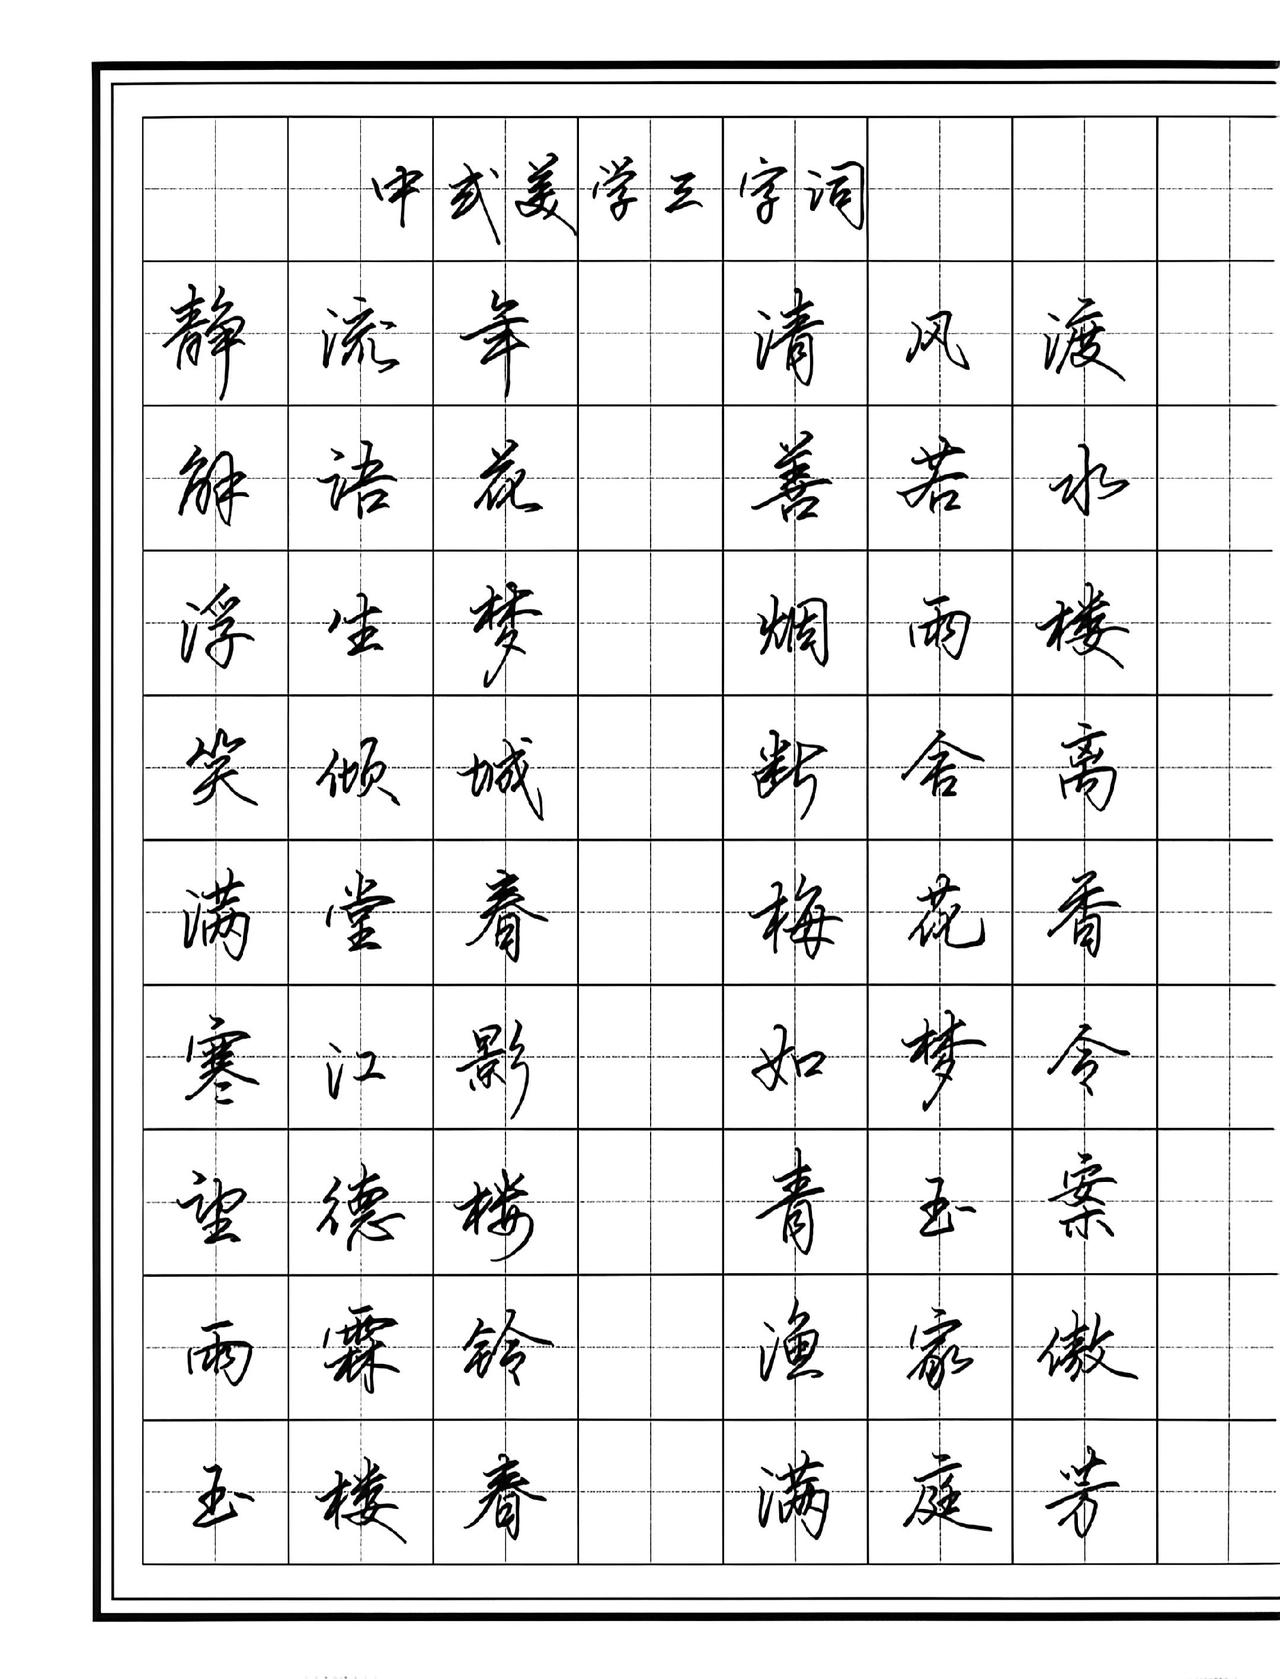 中式美学三字词
静流年 清风渡
解语花 善若水
浮生梦 烟雨楼
笑倾城 断舍离
满堂春 梅花香
寒江影 如梦令
望德楼 青玉案
雨霖铃 渔家傲
玉楼春 满庭芳